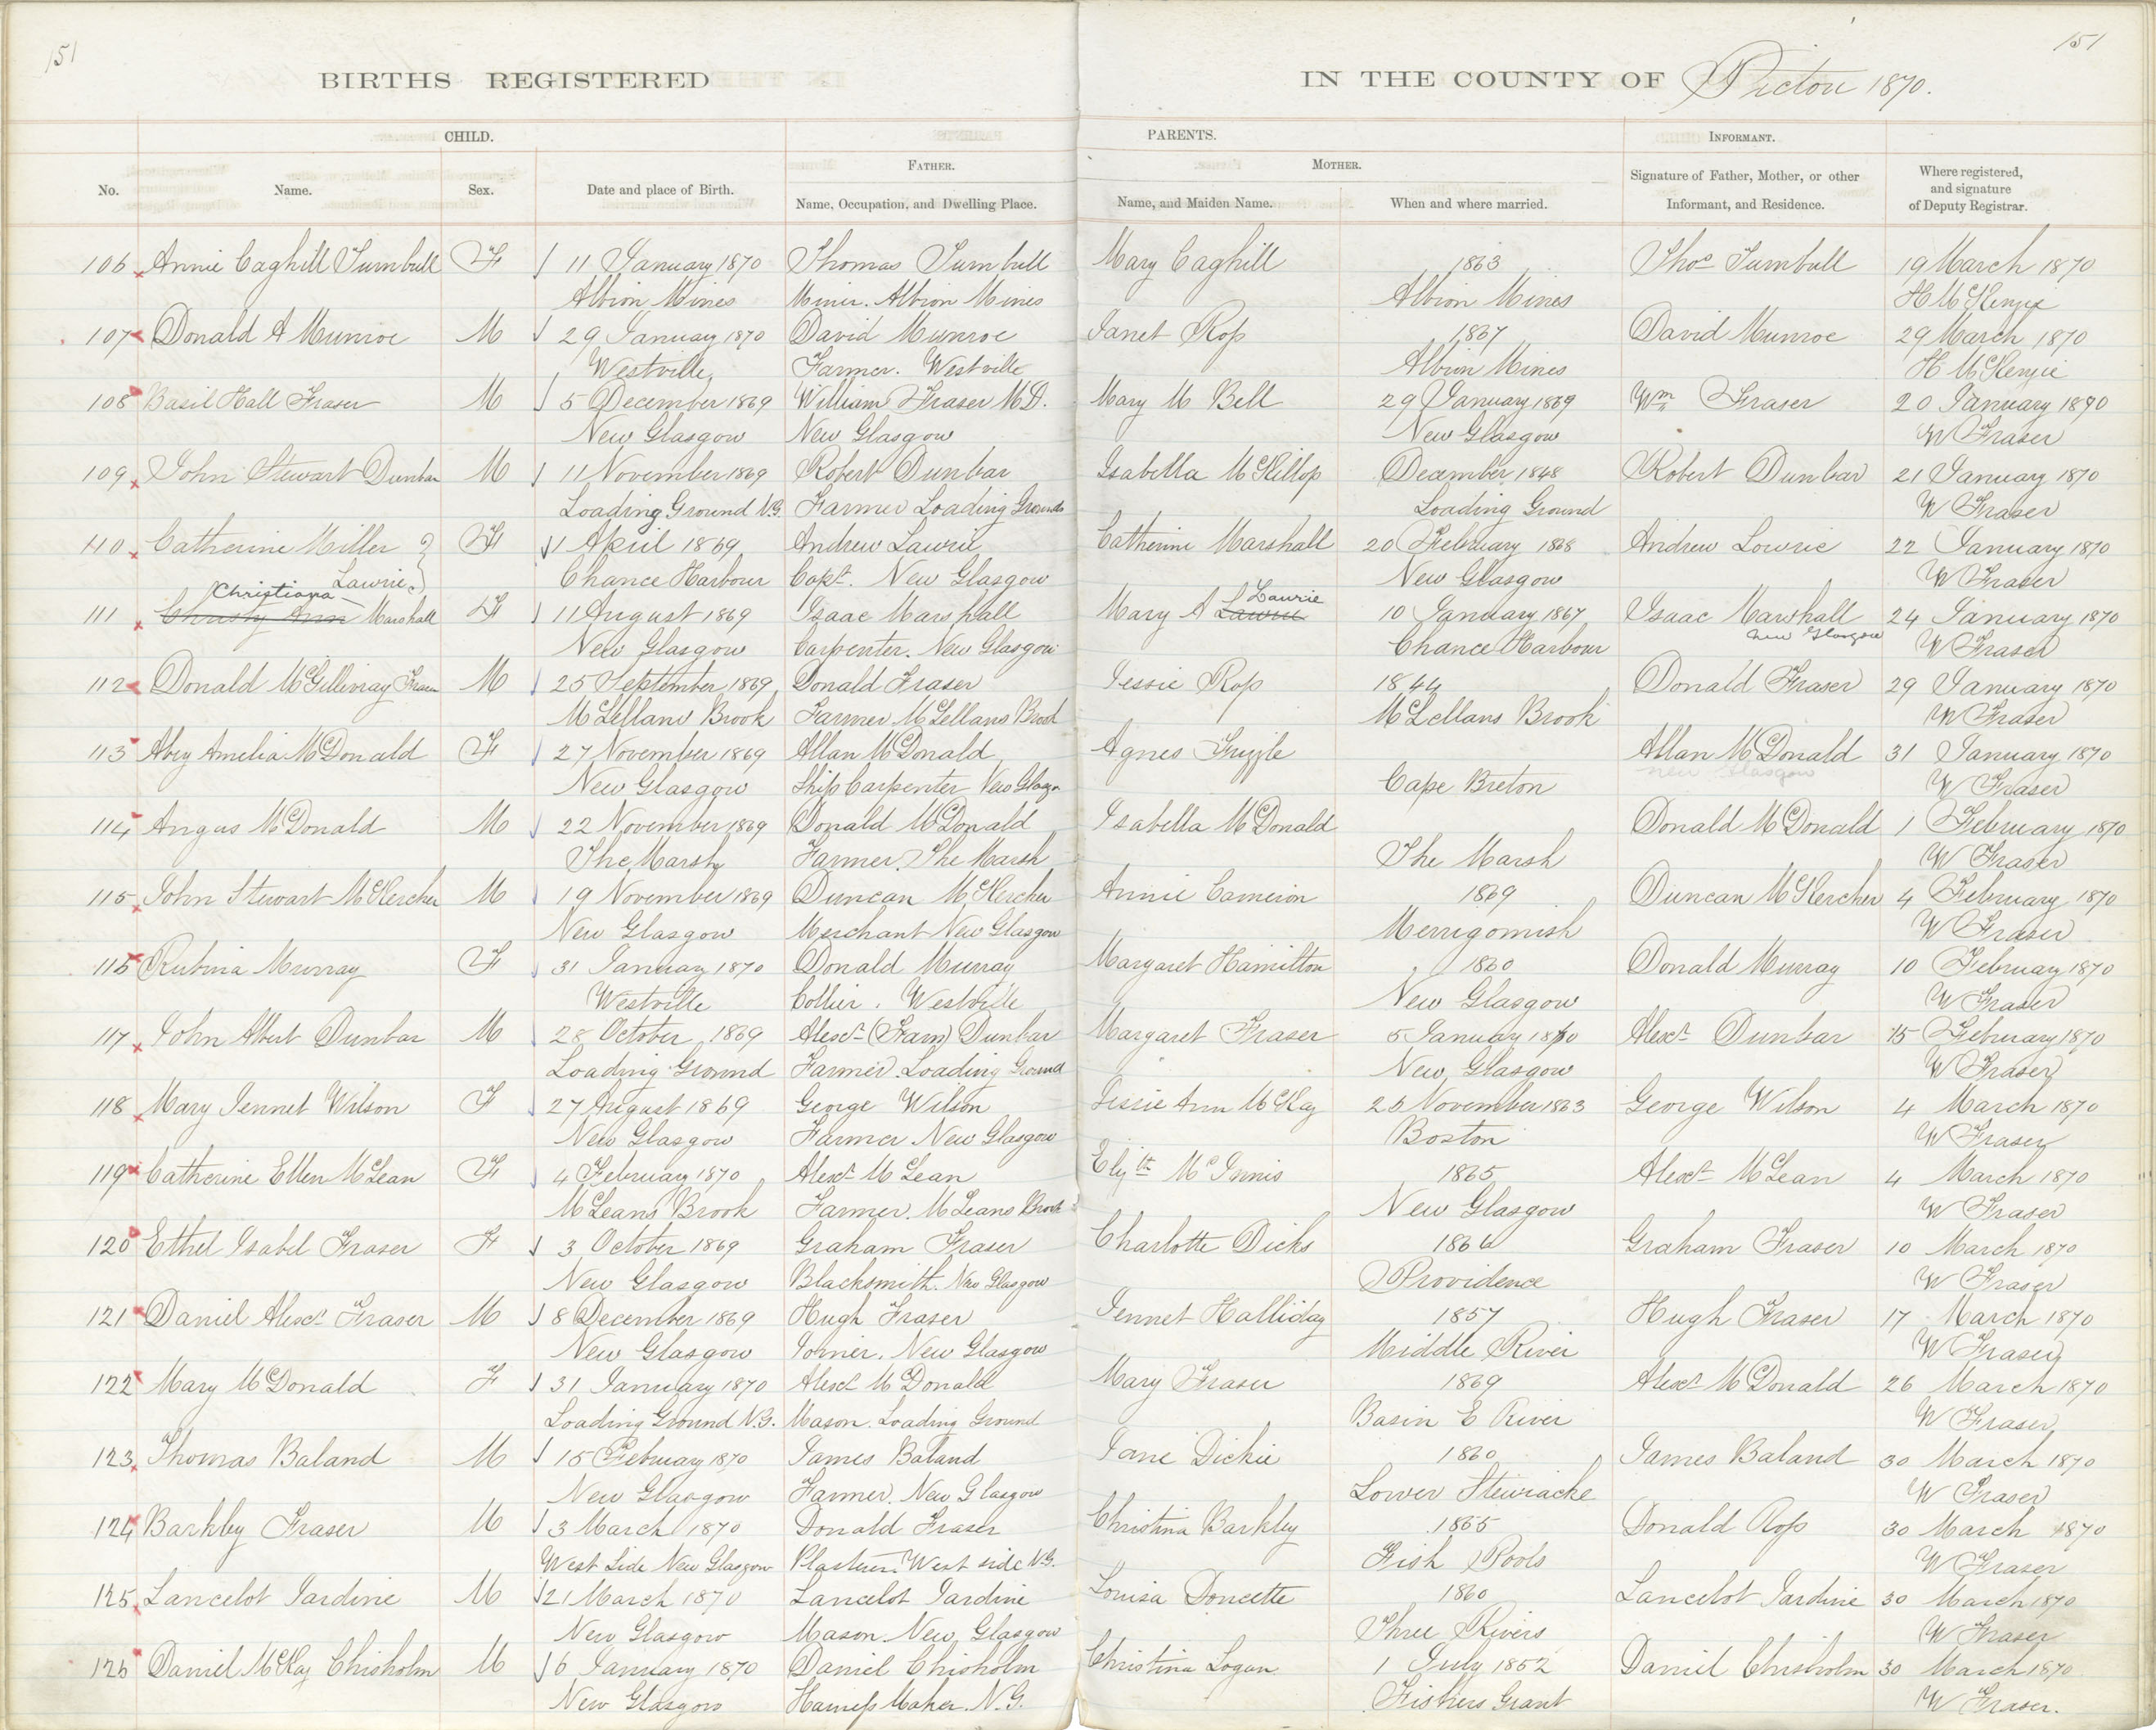 151
151
BIRTHS REGISTERED IN THE COUNTY OF Pictou 1870.
CHILD. PARENTS. INFORMANT.
FATHER. MOTHER.
No. Name. Sex. Date and place of Birth. Name, Occupation, and Dwelling Place. Name, and Maiden Name. When and where married. Signature of Father, Mother, or other Informant, and Residence. Where registered, and signature of Deputy Registrar.
106 Annie Caghill Turnbull F 11 January 1870 Thomas Turnbull Mary Caghill 1863 Thos Turnbull 19 March 1870
Albion Mines Miner. Albion Mines Albion Mines H McKenzie
107 Donald A Munroe M 29 January 1870 David Munroe Janet Ross 1867 David Munroe 29 March 1870
Westville Farmer. Westville Albion Mines H McKenzie
108 Basil Hall Fraser M 5 December 1869 William Fraser M.D. Mary M Bell 29 January 1869 Wm Fraser 20 January 1870
New Glasgow New Glasgow New Glasgow W Fraser
109 John Stewart Dunbar M 11 November 1869 Robert Dunbar Isabella McKillop December 1848 Robert Dunbar 21 January 1870
Loading Ground N.G. Farmer Loading Ground Loading Ground W Fraser
110 Catherine Miller F 1 April 1869 Andrew Lawrie Catherine Marshall 20 February 1868 Andrew Lowrie 22 January 1870
Lawrie Chance Harbour Capt. New Glasgow New Glasgow W Fraser
Christiana Laurie
111 Christy Ann Marshall F 11 August 1869 Isaac Marshall Mary A Lawrie 10 January 1867 Isaac Marshall 24 January 1870
New Glasgow Carpenter. New Glasgow Chance Harbour New Glasgow W Fraser
112 Donald McGillivray Fraser M 25 September 1869 Donald Fraser Jessie Ross 1844 Donald Fraser 29 January 1870
McLellans Brook Farmer McLellans Brook McLellans Brook W Fraser
113 Amelia McDonald F 27 November 1869 Allan McDonald Agnes Allan McDonald 31 January 1870
New Glasgow Ship Carpenter New Glasgow Cape Breton New Glasgow W Fraser
114 Angus McDonald M 22 November 1869 Donald McDonald Isabella McDonald Donald McDonald 1 February 1870
The Marsh Farmer. The Marsh The Marsh W Fraser
115 John Stewart McKercher M 19 November 1869 Duncan McKercher Annie Cameron 1869 Duncan McKercher 4 February 1870
New Glasgow Merchant New Glasgow Merrigomish W Fraser
116 Rubina Murray F 31 January 1870 Donald Murray Margaret Hamilton 1860 Donald Murray 10 February 1870
Westville Collier. Westville New Glasgow W Fraser
117 John Albert Dunbar M 28 October 1869 Alexr (Farm) Dunbar Margaret Fraser 5 January 1860 Alexr Dunbar 15 February 1870
Loading Ground Farmer Loading Ground New Glasgow W Fraser
118 Mary Jennet Wilson F 27 August 1869 George Wilson Jessie Ann McKay 26 November 1863 George Wilson 4 March 1870
New Glasgow Farmer New Glasgow Boston W Fraser
119 Catherine Ellen McLean F 4 February 1870 Alexr McLean Elizth McInnis 1865 Alexr McLean 4 March 1870
McLeans Brook Farmer. McLeans Brook New Glasgow W Fraser
120 Ethel Isabel Fraser F 3 October 1869 Graham Fraser Charlotte Dicks 1866 Graham Fraser 10 March 1870
New Glasgow Blacksmith. New Glasgow Providence W Fraser
121 Daniel Alexr Fraser M 8 December 1869 Hugh Fraser Jennet Halliday 1857 Hugh Fraser 17 March 1870
New Glasgow Joiner. New Glasgow Middle River W Fraser
122 Mary McDonald F 31 January 1870 Alexr McDonald Mary Fraser 1869 Alexr McDonald 26 March 1870
Loading Ground N.G. Mason. Loading Ground Basin E River W Fraser
123 Thomas Baland M 15 February 1870 James Baland Jane Dickie 1860 James Baland 30 March 1870
New Glasgow Farmer. New Glasgow Lower Stewiacke W Fraser
124 Barkley Fraser M 3 March 1870 Donald Fraser Christina Barkley 1855 Donald Ross 30 March 1870
West Side New Glasgow Plasterer. West side N.G. Fish Pools W Fraser
125 Lancelot Jardine M 21 March 1870 Lancelot Jardine Louisa Doucette 1860 Lancelot Jardine 30 March 1870
New Glasgow Mason. New Glasgow Three Rivers W Fraser
126 Daniel McKay Chisholm M 6 January 1870 Daniel Chisholm Christina Logan 1 July 1852 Daniel Chisholm 30 March 1870
New Glasgow Harness Maker. N.G. Fishers Grant W Fraser.